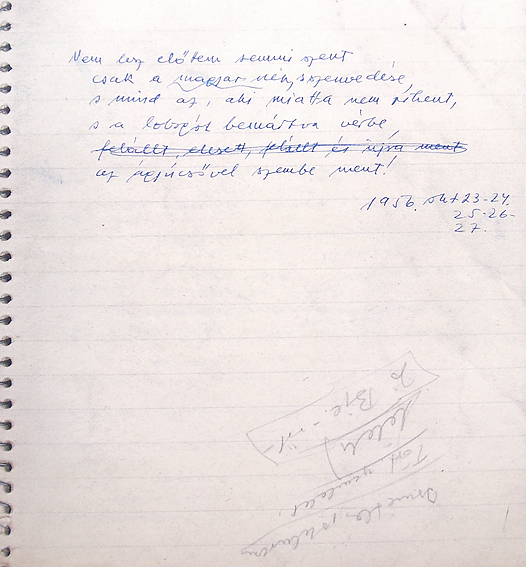 Nem lesz előttem semmi szent
csak a magyar nép szenvedése,
s mind az, aki miatta nem pihent,
s a lobogót bemártva vérbe
felállt elesett, felállt és újra ment
az ágyúcsővel szembe ment!
1956. okt 23-24.
25-26-
27.